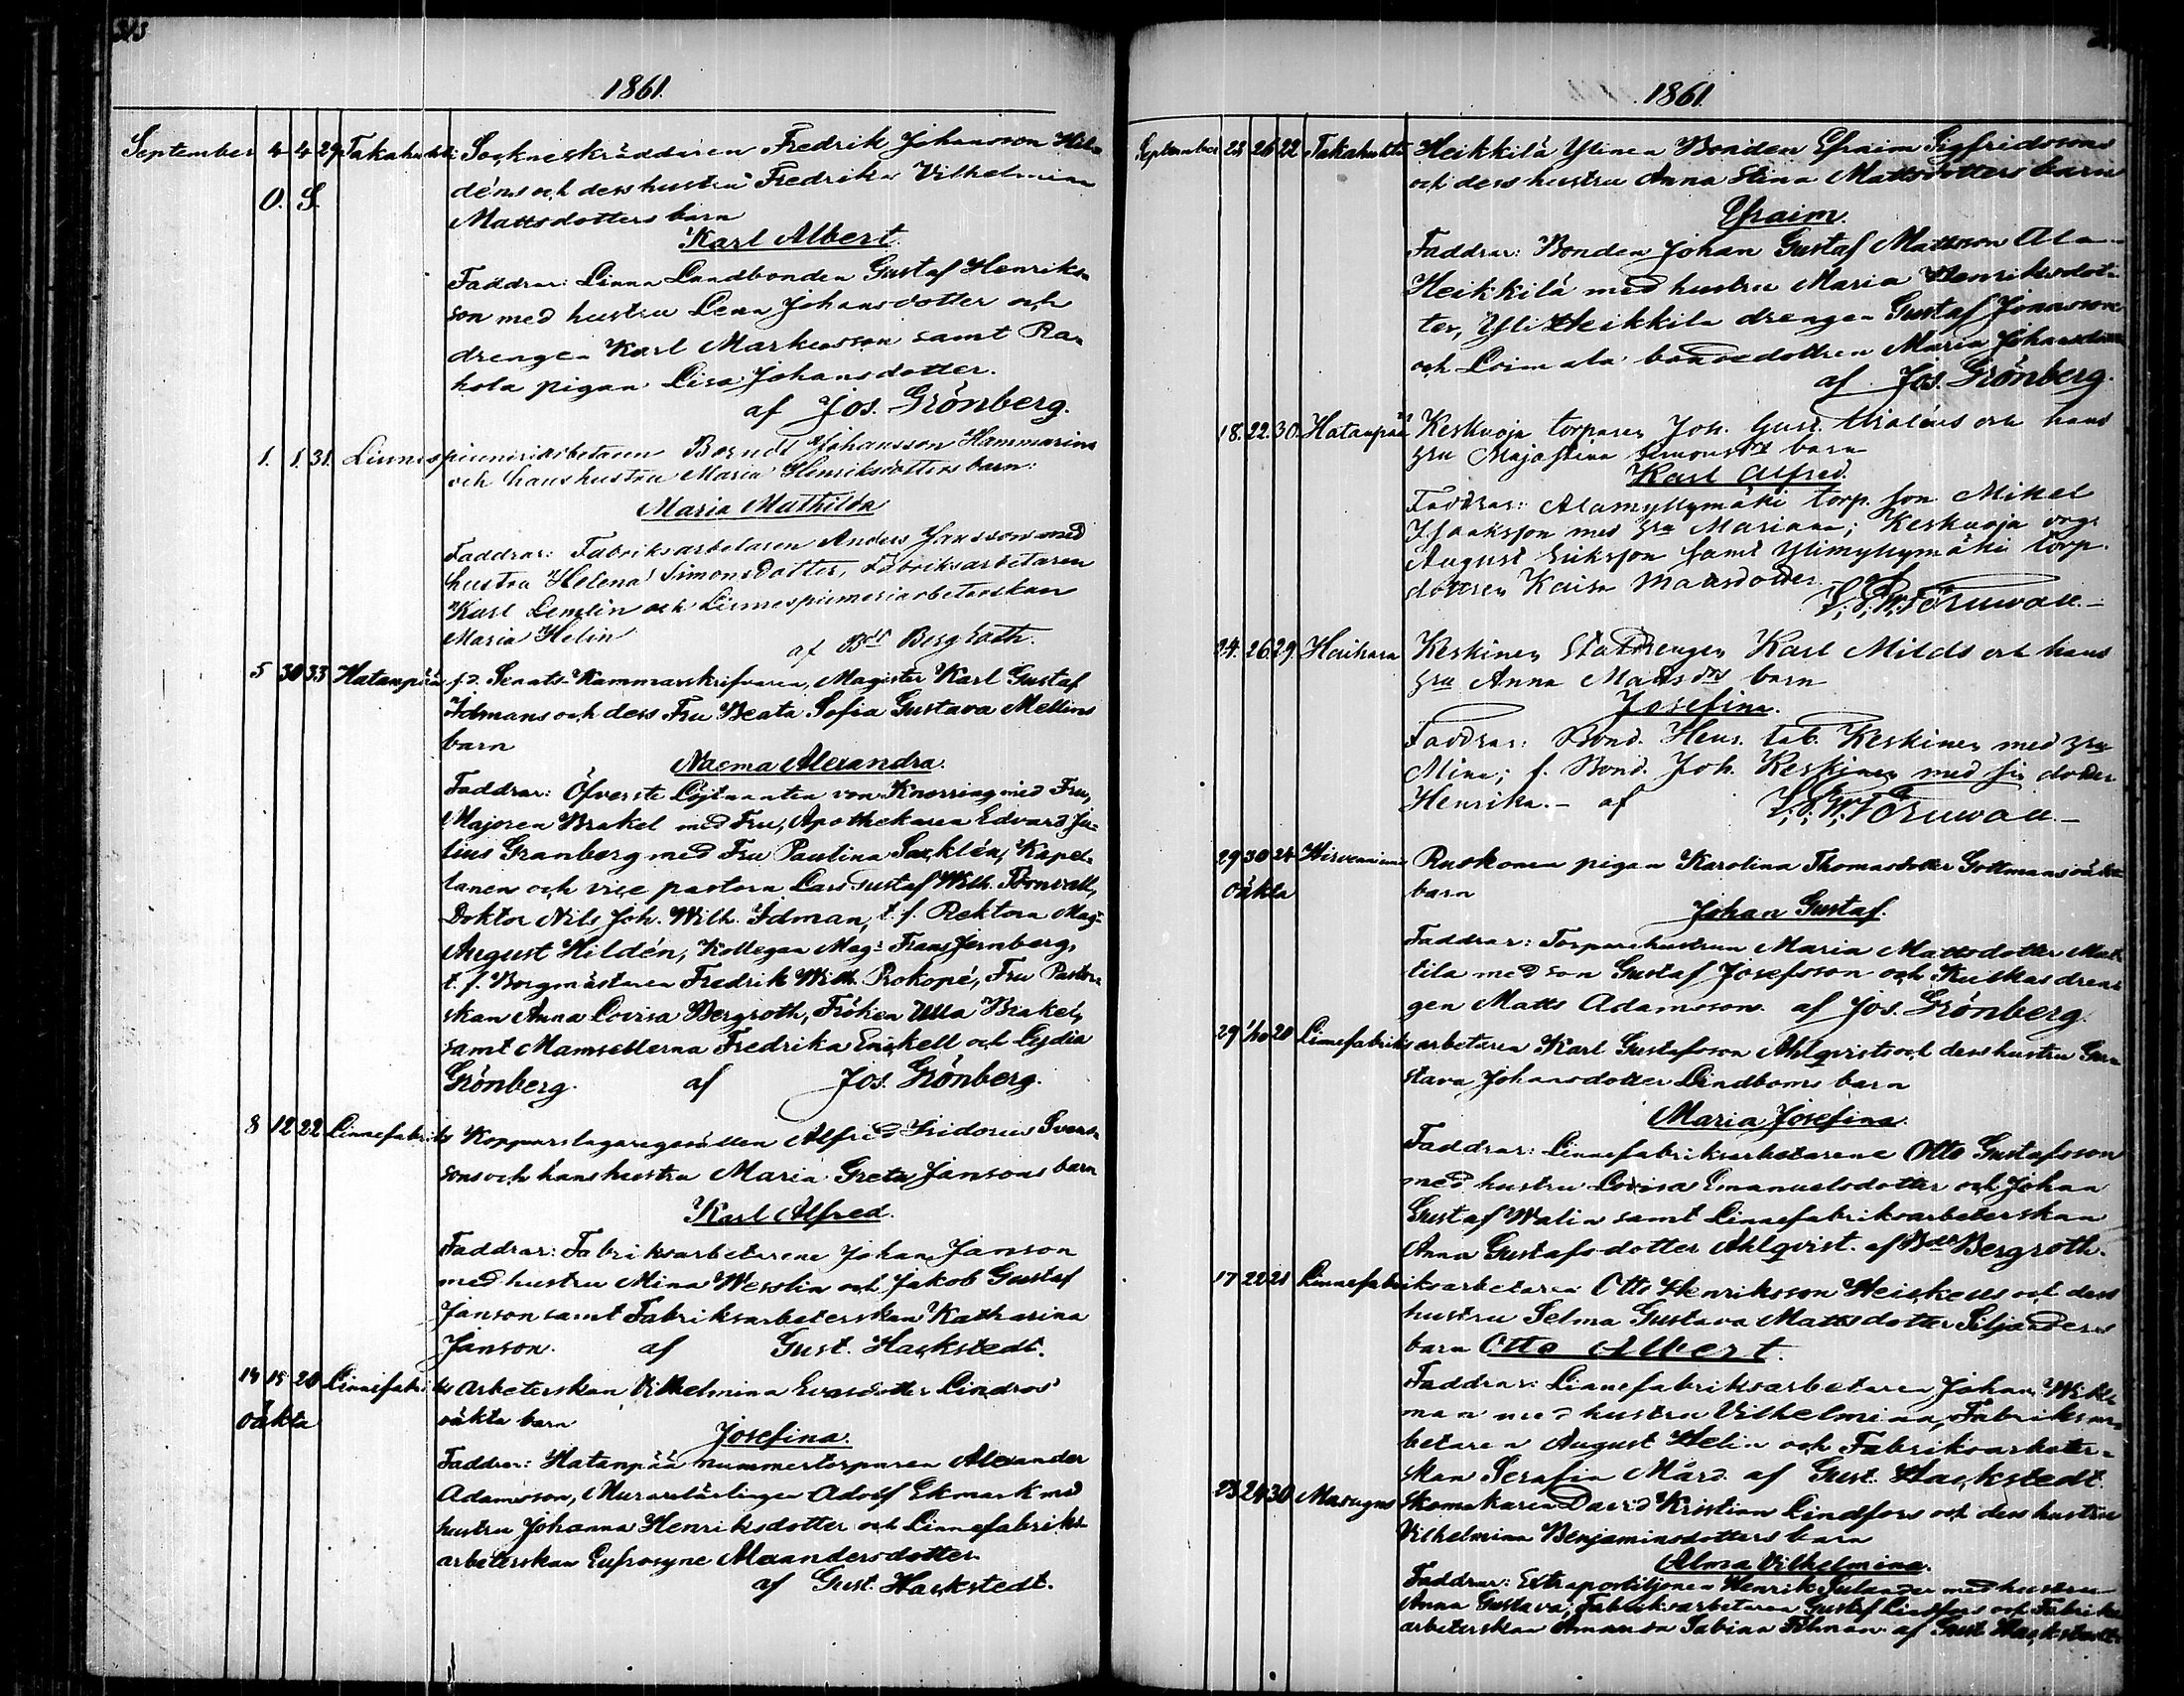 1861.
September 4 4 29 Takahuhti Sockneskräddaren Fredrik Johansson Hil-
déns och dess hustru Fredrika Vilhelmina
O. S.
Mattsdotters barn
Karl Albert.
Faddrar: Linna Landbonden Gustaf Henriks-
son med hustru Lena Johansdotter och
drengen Karl Markusson samt Ra-
hola pigan Lisa Johansdotter.
af Jos. Grönberg.
1. 1. 31. Linnespinneriarbetaren Berndt Johansson Hammarins
och hans hustru Maria Henriksdotters barn:
Maria Mathilda
Faddrar: Fabriksarbetaren Anders Jansson med
hustru Helena Simonsdotter, Fabriksarbetaren
Karl Lemlin och Linnespinneriarbeterskan
Maria Helin
af Bd Bergroth.
5 30 33 Hatanpää f.d. Senats-Kammarskrifvaren, Magister Karl Gustaf
Idmans och dess Fru Beata Sofia Gustava Mellins
barn
Naema Alexandra.
Faddrar: Öfverste Löjtnanten von Knorring med Fru,
Majoren Brakel med Fru, Apothekaren Edvard Ju-
lius Granberg med Fru Paulina Saxklén, Kapel-
lanen och vice pastorn Lars Gustaf Wilh. Törnvall,
Doktor Nils Joh. Wilh. Idman, t.f. Rektorn Mag:
August Hildén, Kollegan Mag: Frans Jernberg,
t.f. Borgmästaren Fredrik Wilh. Prokopé, Fru Pastor-
skan Anna Lovisa Bergroth, Fröken Ulla Brakel,
samt Mamsellerna Fredrika Enckell och Lydia
Grönberg. af Jos. Grönberg.
8 12 22 Linnefabriks Kopparslagaregesällen Alfred Isidorus Svens-
sons och hans hustru Maria Greta Jansons barn
Karl Alfred.
Faddrar: Fabriksarbetarene Johan Janson
med hustru Mina Wesslin och Jakob Gustaf
Janson samt Fabriksarbeterskan Katharina
Janson. af Gust. Hackstedt.
14 15 20 Linnefabriks arbeterskan Vilhelmina Evasdotter Lindros
oäkta
oäkta barn
Josefina.
Faddrar: Hatanpää nummertorparen Alexander
Adamsson, Murarelärlingen Adolf Ekmark med
hustru Johanna Henriksdotter och Linnefabriks-
arbeterskan Eufrosyne Alexandersdotter.
af Gust. Hackstedt.
1861.
September 23 26 22 Takahuhti Heikkilä Ylinen Bonden Efraim Sigfridssons
och dess hustru Anna Stina Mattsdotters barn
Efraim.
Faddrar: Bonden Johan Gustaf Mattsson Ala-
Heikkilä med hustru Maria Henriksdot-
ter, Yli Heikkilä drengen Gustaf Jonasson
och Loimala bondedottren Maria Johansdotter
af Jos. Grönberg.
18. 22. 30. Hatanpää Keskuoja torparen Joh. Gust. och hans
hru Maja Stina Simonsdrs barn
Karl Alfred.
Faddrar: Alamyllymäki torp. son Mikel
Isaaksson med hru Mariana; Keskuoja drng:
August Eriksson samt Ylimyllymäki torp.
dottren Kaisa Mattsdotter. af
L. G. W. Törnwall.
24. 26 29. Haihara Keskinen Stattdrengen Karl Milds och hans
hru Anna Mattsdrs barn
Josefina.
Faddrar: Bond. Henr. Keskinen med hru
Mina; f. Bond. Joh. Keskinen med sin dotter
Henrika. - af L. G. W. Törnwall.
29 30 24 Hirvenniemi Ruskonen pigan Karolina Thomasdotter Gottmans oäkta
oäkta
barn
Johan Gustaf.
Faddrar: Torparehustrun Maria Mattsdotter Mat-
tila med son Gustaf Josefsson och dren-
gen Matts Adamsson. af Jos. Grönberg.
29 1/10 20 Linnefabriksarbetaren Karl Gustafsson Ahlqvists och dess hustru Gus-
tava Johansdotter Lindboms barn
Maria Josefina.
Faddrar: Linnefabriksarbetarene Otto Gustafsson
med hustru Lovisa Emanuelsdotter och Johan
Gustaf Walin samt Linnefabriksarbeterskan
Anna Gustafsdotter Ahlqvist. af Bd Bergroth.
17 22 21 Linnefabriksarbetaren Otto Henriksson Heickells och dess
hustru Selma Gustava Mattsdotter Siljanders
barn Otto Albert.
Faddrar: Linnefabriksarbetaren Johan Wikl-
man med hustru Vilhelmina, Fabriksar-
betaren August Helin och Fabriksarbeter-
skan Serafin Mård. af Gust. Hackstedt.
23 24 30 Masugns Skomakaren David Kristian Lindfors och dess hustru
Vilhelmina Benjaminsdotters barn
Alma Vilhelmina.
Faddrar: Extrapostiljonen Henrik Sulander med hustru
Anna Gustava, Fabriksarbetaren Gustaf Lindfors och Fabriks-
arbeterskan Amanda Sabina Filman. af Gust. Hackstedt